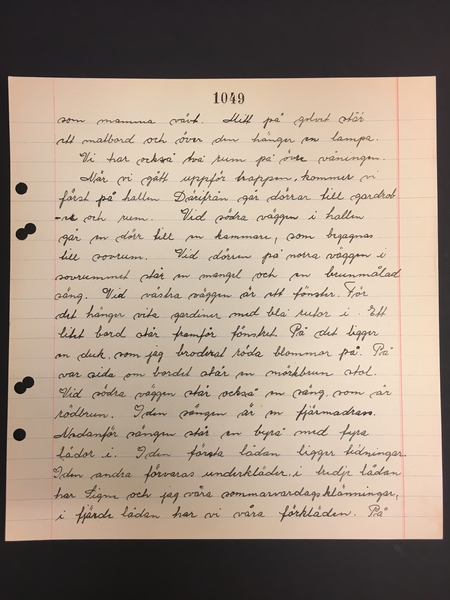 1049
som mamma vävt. Mitt på golvet står
ett matbord och över den hänger en lampa.
Vi har också två rum på övre våningen.
När vi gått uppför trappen, kommer vi
först på hallen Därifrån går dörrar till gardrob
-re och rum. Vid södra väggen i hallen
går en dörr till en kammare, som begagnas
till sovrum. Vid dörren på norra väggen i
sovrummet står en mangel och en brunmålad
säng. Vid västra väggen är ett fönster. För
det hänger vita gardiner med blå rutor i. Ett
litet bord står framför fönstret. På det ligger
en duk, som jag broderat röda blommor på. På
var sida om bordet står en mörkbrun stol.
Vid södra väggen står också en säng som är
rödbrun. I den sängen är en fjärmadrass.
Nedanför sängen står en byrå med fyra
lådor i. I den första lådan ligger tidningar.
I den andra förvaras underkläder, i tredje lådan
har Signe och jag våra sommarvardagsklänningar,
i fjärde lådan har vi våra förkläden. På